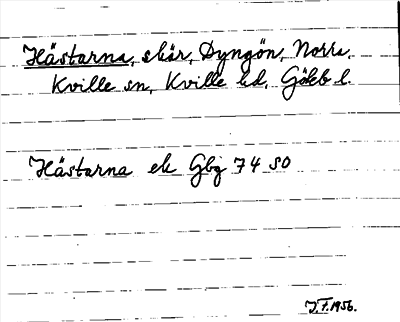 Hästarna, skär, Dyngön, Norra
Kville sn, Kville hd, Göteb l.
Hästarna ek Gbg 74 SO
J.F.1956.